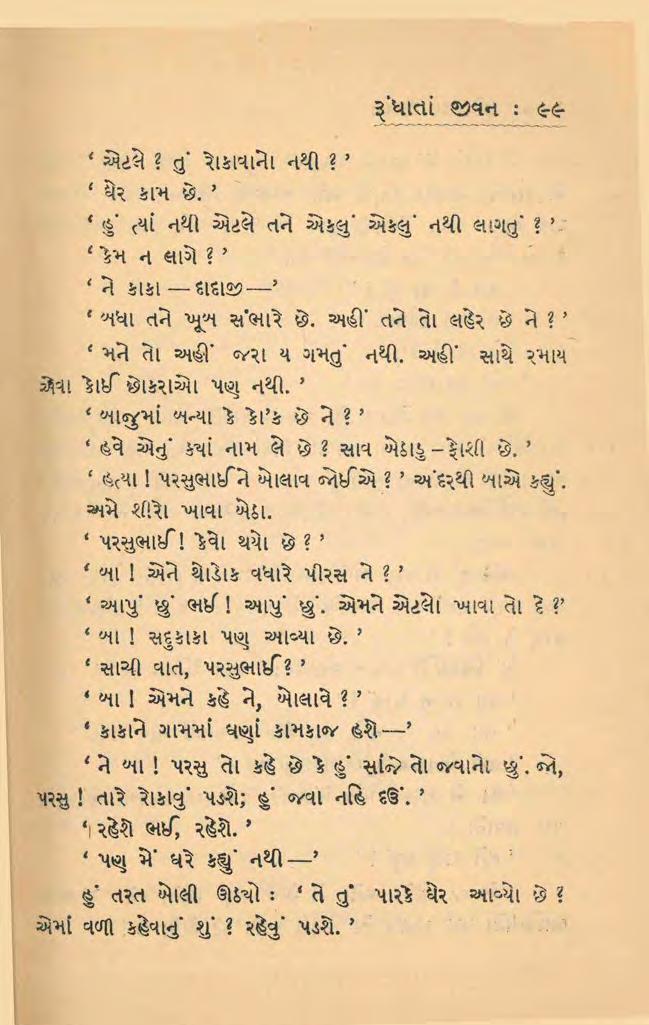 રૂંધાતાં જીવન : ૯૯
‘ એટલે ? તું રોકાવાનો નથી ? ’
‘ ઘેર કામ છે. ’
‘ હું ત્યાં નથી એટલે તને એકલું એકલું નથી લાગતું ? ’
‘ કેમ ન લાગે ? ’
‘ ને કાકા — દાદાજી —’
‘ બધા તને ખૂબ સંભારે છે. અહીં તને તો લહેર છે ને ? ’
‘ મને તો અહીં જરા ય ગમતું નથી. અહીં સાથે રમાય
એવા કોઈ છોકરાઓ પણ નથી. ’
‘ બાજુમાં બન્યા કે કો’ક છે ને ? ’
‘ હવે એનું ક્યાં નામ લે છે ? સાવ બેઠાડુ – ફોશી છે. ’
‘ હત્યા ! પરસુભાઈને બોલાવ જોઈએ ? ’ અંદરથી બાએ કહ્યું.
અમે શીરો ખાવા બેઠા.
‘ પરસુભાઈ ! કેવો થયો છે ? ’
‘ બા ! એને થોડોક વધારે પીરસ ને ? ’
‘ આપું છું ભઈ ! આપું છું. એમને એટલો ખાવા તો દે ?’
‘ બા ! સદુકાકા પણ આવ્યા છે. ’
‘ સાચી વાત, પરસુભાઈ ? ’
‘ બા ! એમને કહે ને, બોલાવે ? ’
‘ કાકાને ગામમાં ઘણાં કામકાજ હશે—’
‘ ને બા ! પરસુ તો કહે છે કે હું સાંજે તો જવાનો છું. જો,
પરસુ ! તારે રોકાવું પડશે; હું જવા નહિ દઉં. ’
‘ રહેશે ભઈ, રહેશે. ’
‘ પણ મેં ઘરે કહ્યું નથી —’
હું તરત બોલી ઊઠ્યો : ‘ તે તું પારકે ઘેર આવ્યો છે ?
એમાં વળી કહેવાનું શું ? રહેવું પડશે. ’